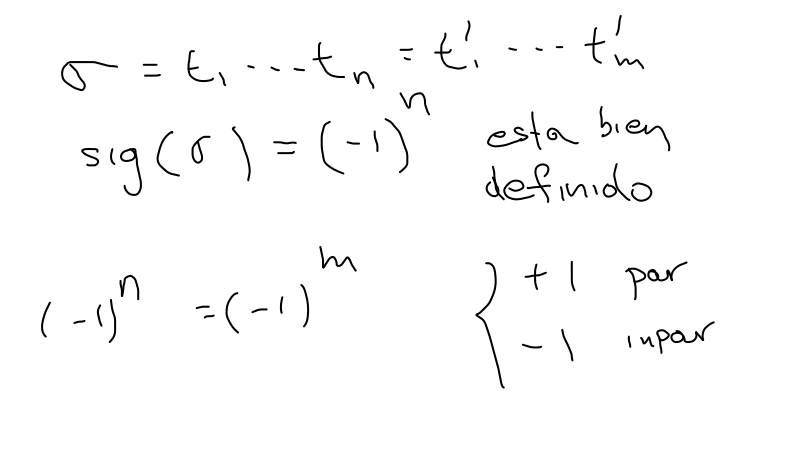 σ = t₁ ... tₙ = t'₁ ... t'ₘ
sig(σ) = (-1)ⁿ esta bien
definido
(-1)ⁿ = (-1)ᵐ { +1 par
-1 inpar